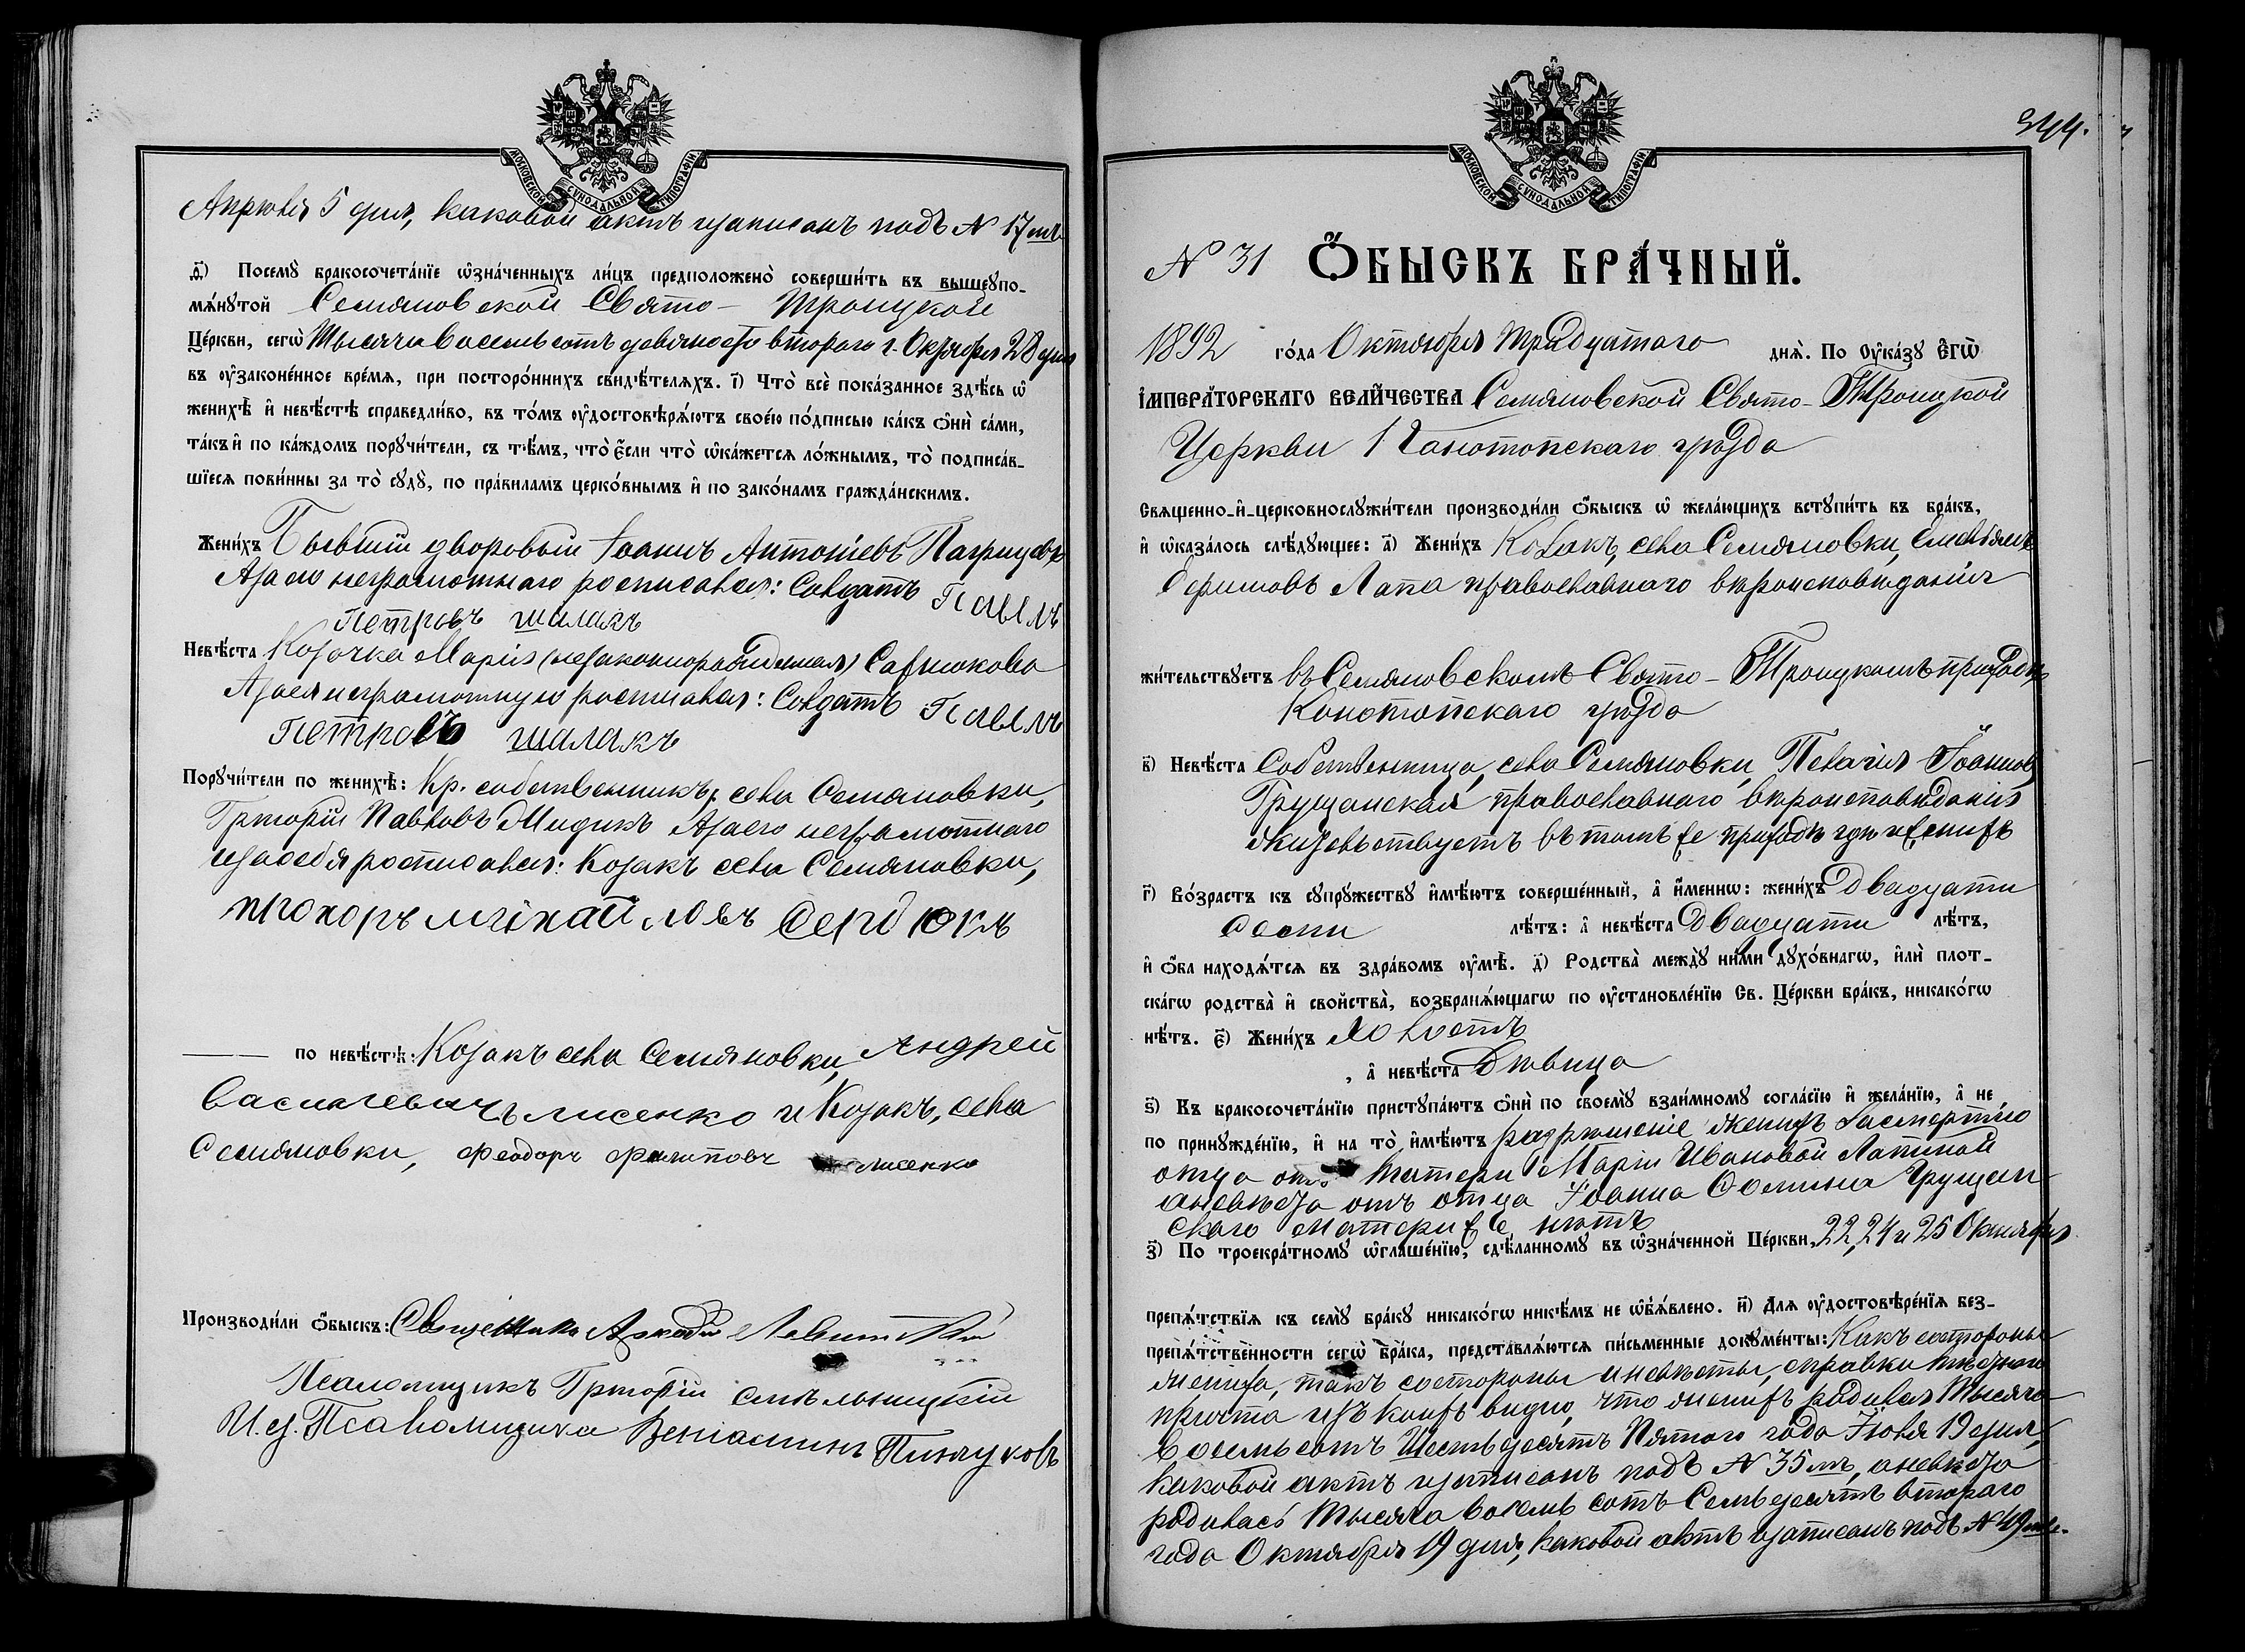 МОСКОВСКОЙ СУНОДАЛЬНОЙ ТИПОГРАФІИ
Апрѣля 5 дня, каковой актъ и записанъ подъ № 17мъ
д҃і) Посемꙋ̀ бракосочета́нїе ѡ҆зна́ченныхъ ли́цъ предположено̀ соверши́ть въ вышеꙋпо-
мѧ́нꙋтой Семяновской Свято- Троицкой
Це́ркви, сегѡ̀ Тысяча восемьсотъ девяносто второго г. Октября 28 дня
въ ᲂу҆законе́нное вре́мѧ, при посторо́ннихъ свидѣ́телѧхъ. і҃) Что̀ всѐ пока́занное здѣ́сь ѡ҆
женихѣ̀ и҆ невѣ́стѣ справедли́во, въ то́мъ ᲂу҆достовѣрѧ́ютъ свое́ю по́дписью ка́къ ѻ҆нѝ са́ми,
та́къ и҆ по ка́ждомъ порꙋчи́тели, съ тѣ́мъ, что̀ є҆́сли что̀ ѡ҆ка́жетсѧ ло́жнымъ, то̀ подписа́в-
шїесѧ пови́нны за то̀ сꙋдꙋ̀, по пра́виламъ церко́внымъ и҆ по зако́намъ гражда́нскимъ.
Жени́хъ Бывший дворовый Іоаннъ Антоніевъ
А за его неграмотнаго росписался: Солдатъ Павелъ
Петровъ шалакъ
Невѣ́ста Козачка Марія (незаконнорожденная) Савлюкова
А за ея неграмотную росписался: Солдатъ Павелъ
Петровъ шалакъ
Порꙋчи́тели по женихѣ̀: Кр. собственникъ, села Семяновки,
Григорій Павловъ Мидикъ А за его неграмотнаго
и за себя росписался: Козакъ села Семяновки,
прохоръ михайловъ Сердюкъ
по невѣ́стѣ: Козакъ села Семяновки, Андрей
Василевичъ лисенко и Козакъ, села
Семяновки, Феодоръ Филиповъ лисенко
Производи́ли ѻ҆́быскъ: Священникъ Аркадій Левитскій
Псаломщикъ Григорій Смѣльницкій
И. д. Псаломщика Веніаминъ Пинчуковъ
МОСКОВСКОЙ СУНОДАЛЬНОЙ ТИПОГРАФІИ
344.
№ 31 Ѻ҆́БЫСКЪ БРА́ЧНЫЙ.
1892 го́да Октября Тридцатого днѧ̀. По ᲂу҆ка́зꙋ Є҆гѡ̀
І҆МПЕРА́ТОРСКАГО ВЕЛИ́ЧЕСТВА Семяновской Свято-Троицкой
Церкви Конотопскаго уѣзда
Свѧще́нно-и҆-церковнослꙋжи́тели производи́ли ѻ҆́быскъ ѡ҆ жела́ющихъ встꙋпи́ть въ бра́къ,
и҆ ѡ҆каза́лось слѣ́дꙋющее: а҃) Жени́хъ Козакъ, села Семяновки, Емельянъ
Лапа православнаго вѣроисповѣданія
жи́тельствꙋетъ въ Семяновскомъ Свято-Троицкомъ приходѣ
Конотопскаго уѣзда
в҃) Невѣ́ста Собственница, села Семяновки, Пелагія Іоаннов
Грущанская православнаго вѣроисповѣданія
жительствуетъ въ томъ же приходѣ гдѣ и женихъ
г҃) Во́зрастъ къ сꙋпрꙋ́жествꙋ и҆мѣ́ютъ соверше́нный, а҆ и҆́менно: жени́хъ двадцати
семи лѣ́тъ: а҆ невѣ́ста Двадцати лѣ́тъ,
и҆ ѻ҆́ба нахо́дѧтсѧ въ здра́вомъ ᲂу҆мѣ̀. д҃) Родства̀ междꙋ̀ ни́ми дꙋхо́внагѡ, и҆лѝ плот-
ска́гѡ родства̀ и҆ свойства̀, возбранѧ́ющагѡ по ᲂу҆становле́нїю Св. Це́ркви бра́къ, никако́гѡ
нѣ́тъ. є҃) Жени́хъ Холостъ
, а҆ невѣ́ста Дѣвица
ѕ҃) Къ бракосочета́нїю пристꙋпа́ютъ ѻ҆нѝ по своемꙋ̀ взаи́мномꙋ согла́сїю и҆ жела́нїю, а҆ не
по принꙋжде́нїю, и҆ на то̀ и҆мѣ́ютъ разрѣшеніе женихъ за смертію
отца отъ матери Маріи Ивановой Лапиной
а невѣста отъ отца Іоанна Грущан-
скаго матери же нѣтъ
з҃) По троекра́тномꙋ ѡ҆глаше́нїю, сдѣ́ланномꙋ въ ѡ҆зна́ченной Це́ркви, 22, 24 и 25 Октября
препѧ́тствїѧ къ семꙋ̀ бра́кꙋ никако́гѡ никѣ́мъ не ѡ҆б̾ѧ́влено. и҃) Для ᲂу҆достовѣре́нїѧ без-
препѧ́тственности сегѡ̀ бра́ка, представлѧ́ютсѧ пи́сьменные докꙋме́нты: Какъ со стороны
жениха, такъ со стороны и невѣсты, справки мѣстнаго
причта изъ коихъ видно, что женихъ родился Тысяча
восемьсотъ Шестьдесятъ Пятого года Іюля 19 дня,
каковой актъ и записанъ подъ № 35мъ, а невѣста
родилась Тысяча восемь сотъ Семьдесятъ второго
года Октября 19 дня, каковой актъ и записанъ подъ № 49мъ.